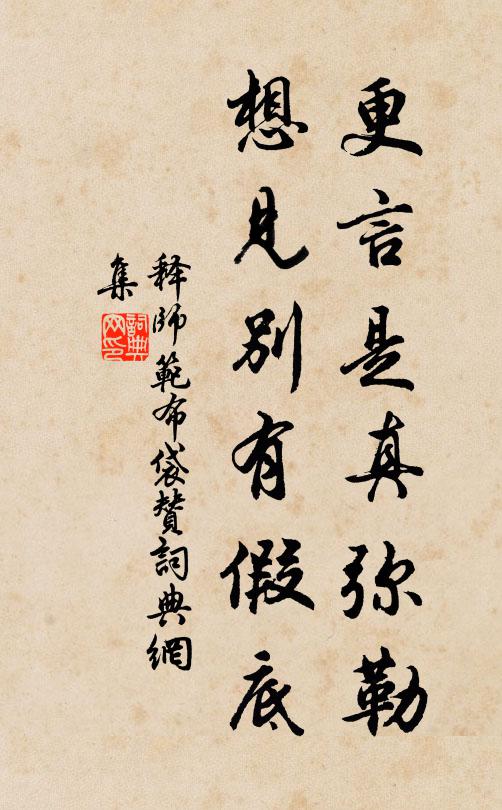 更言是真弥勒
想见别有假底
释师範布袋赞詞典網
集
詞典網印